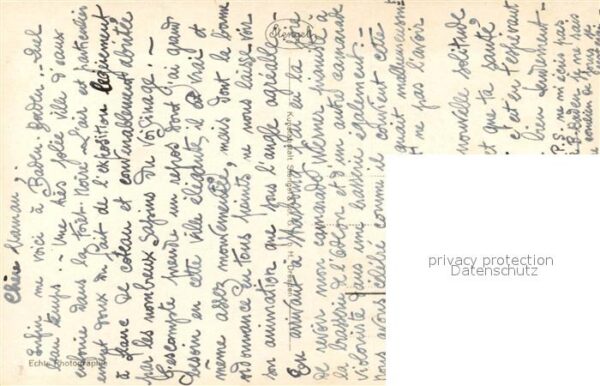 Chère Maman,
Enfin me voici à Baden-Baden. - Quel
beau temps. - Une très jolie ville d'eaux
enfouie dans la Forêt-Noire. L'air est particulièrement
doux du fait de l'exposition légèrement
à flanc de coteau et convenablement abritée
par les nombreux sapins du voisinage. -
J'escompte prendre un repos dont j'ai grand
besoin en cette ville élégante, il est vrai et
même assez mouvementée, mais dont la bonne
ordonnance en tous points ne nous laisse voir
son animation que sous l'angle agréable. -
En arrivant à Strasbourg j'ai eu la joie
de revoir mon camarade Werner pianiste à
la brasserie de l'Ascon et d'un autre camarade
violoniste dans une brasserie également. -
Nous avons célébré comme il convient cette
quait malheureusement
ne pas l'avoir
nouvelle solitude
et que ta santé
et en t'espérant
bien tendrement -
P.S. ne m'écris pas
à B.-Baden
Stengel
Echte Photographie
privacy protection
Datenschutz